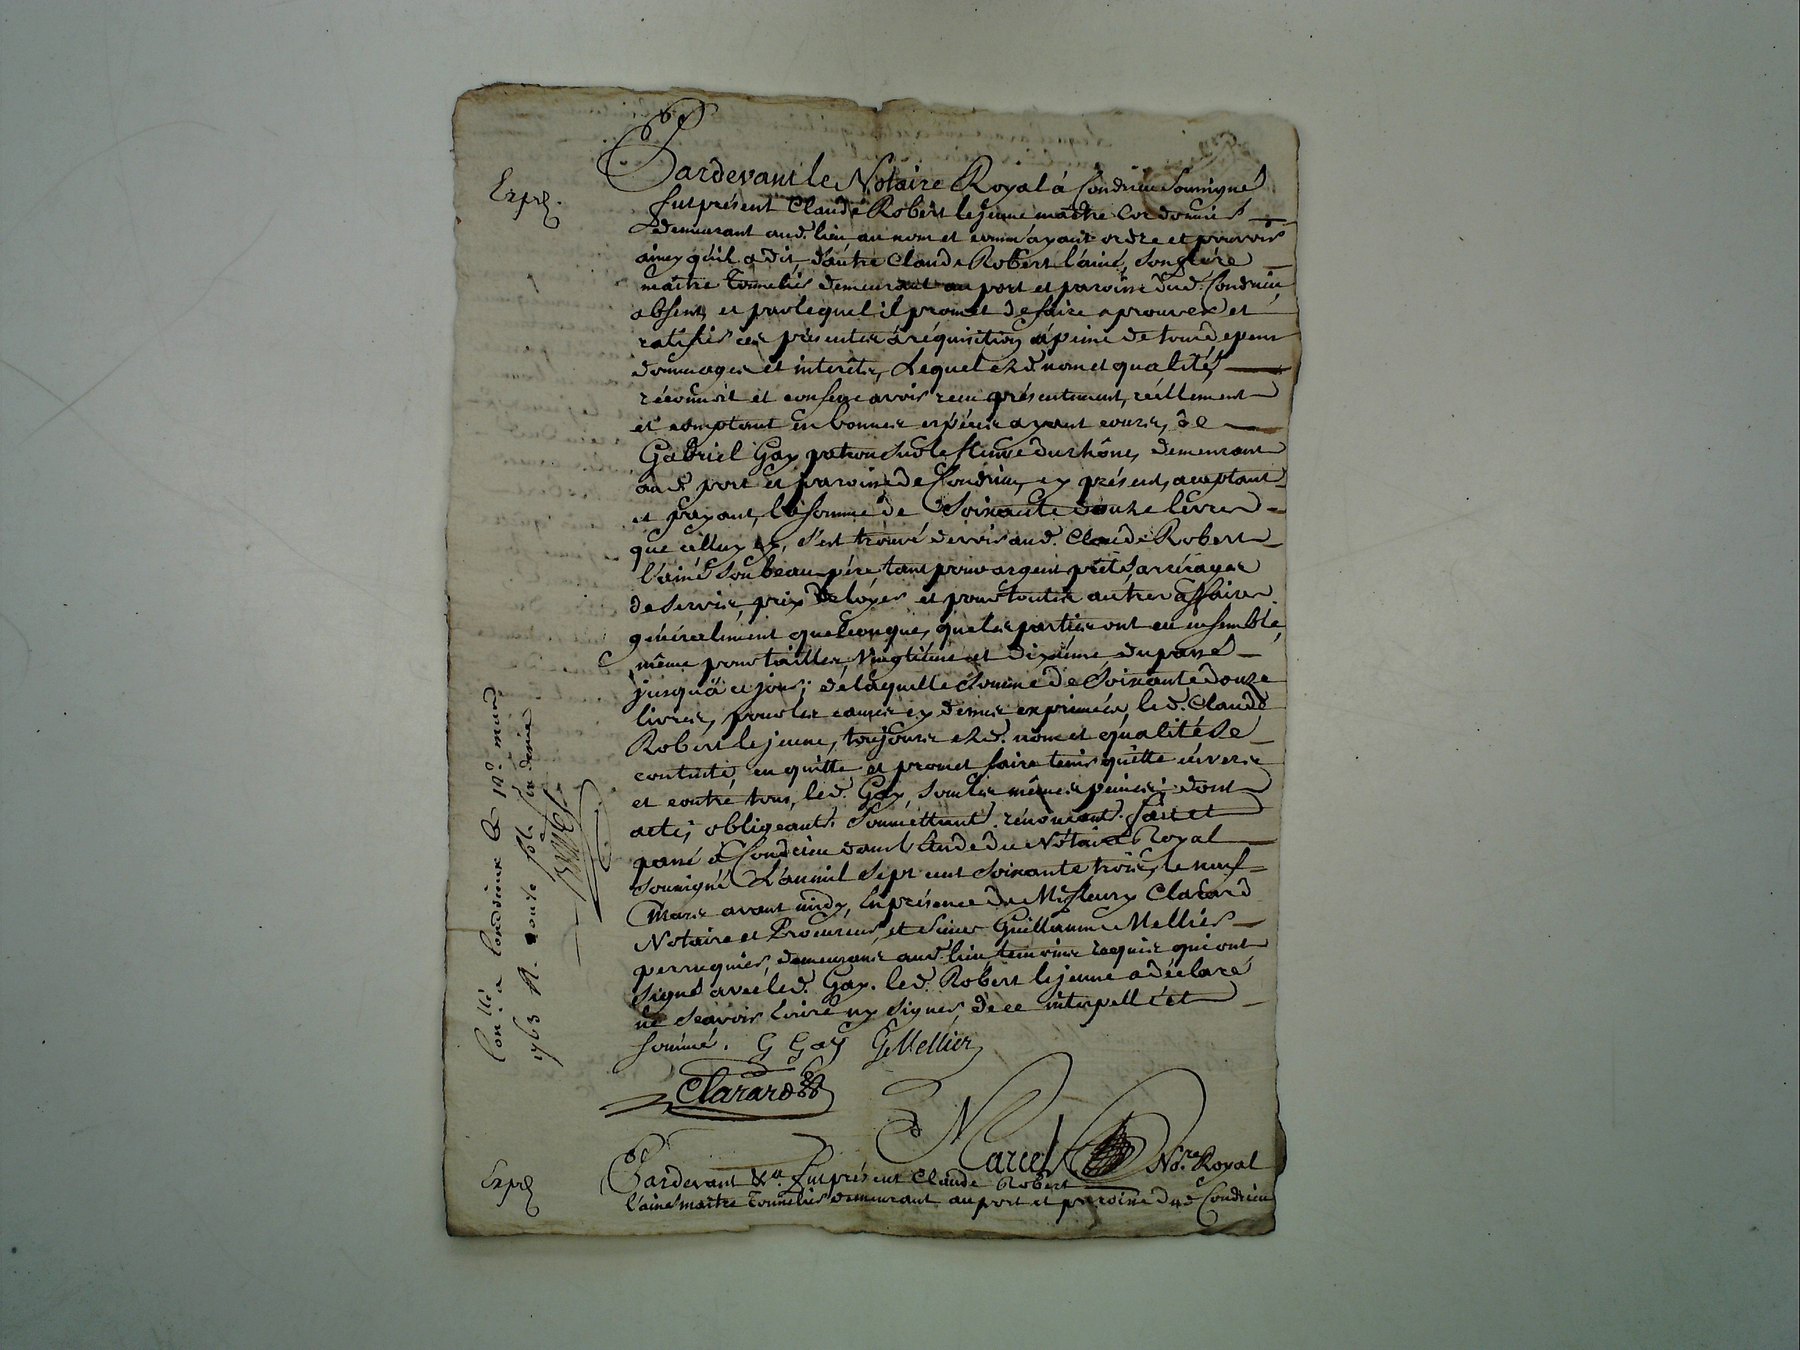 Expé.
Pardevant le Notaire Royal à Condrieu Soussigné
fut présent Claude Robert le jeune maitre Cordonnier
demeurant aud. lieu, au nom et comm'ayant ordre et pouvoir
ainsy qu'il a dit, d'autre Claude Robert l'ainé, son frère
maitre Tonnelier demeurant au port et paroisse dud. Condrieu,
absent, et par lequel il promet de faire aprouver et
ratifier ces présentes à réquisition à peine de tous depens
dommages et interêts, Lequel ezd. nom et qualité,
réconnoit et confesse avoir recu présentement, réellement
et comptant en bonnes espéces ayant cours, de
Gabriel Gay patron sur le fleuve du rhône, demeurant
aud. port et paroisse de Condrieu, cy présent, acceptant
et payant, la somme de Soixante douze livres
que celluy cy, s'est trouvé devoir aud. Claude Robert
l'ainé son beau-pére tant pour argent prété, arrérages
de servis, prix de loyer et pour toutes autres affaires
généralement quelconques, que les parties ont eu ensemble,
même pour tailles, Vingtiéme et dixiéme du passé
jusqu'à ce jour; de laquelle somme de Soixante douze
livres, pour les causes cy dessus exprimées, led. Claude
Robert le jeune, toujours ezd. nom et qualité se
contente, en quitte, et promet faire tenir quitte envers
et contre tous, led. Gay, sous les mêmes peines; dont
acte; obligeants. soumettant. rénonçant. fait et
passé à Condrieu dans l'Etude du Nótaire Royal
soussigné L'an mil sept cent soixante trois, le neuf
Mars avant midy, En présence de Me. fleury Clarard
Notaire et Procureur, et Sieur Guillaume Mellier
perruquier, demeurans aud. lieu, temoins requis qui ont
signé avec led. Gay. led. Robert le jeune a déclaré
ne sçavoir Ecrire ny signer, de ce interpellé et
sommé. G Gay G Mellier
Clarard
Marcel Nore. Royal
Conllé. a Condrieux le 19e. mard
1763 R. douze sols six deniers
Expé
Pardevant &a. fut présent Claude Robert
l'ainé maitre Tonnelier demeurant au port et paroisse dud. Condrieu